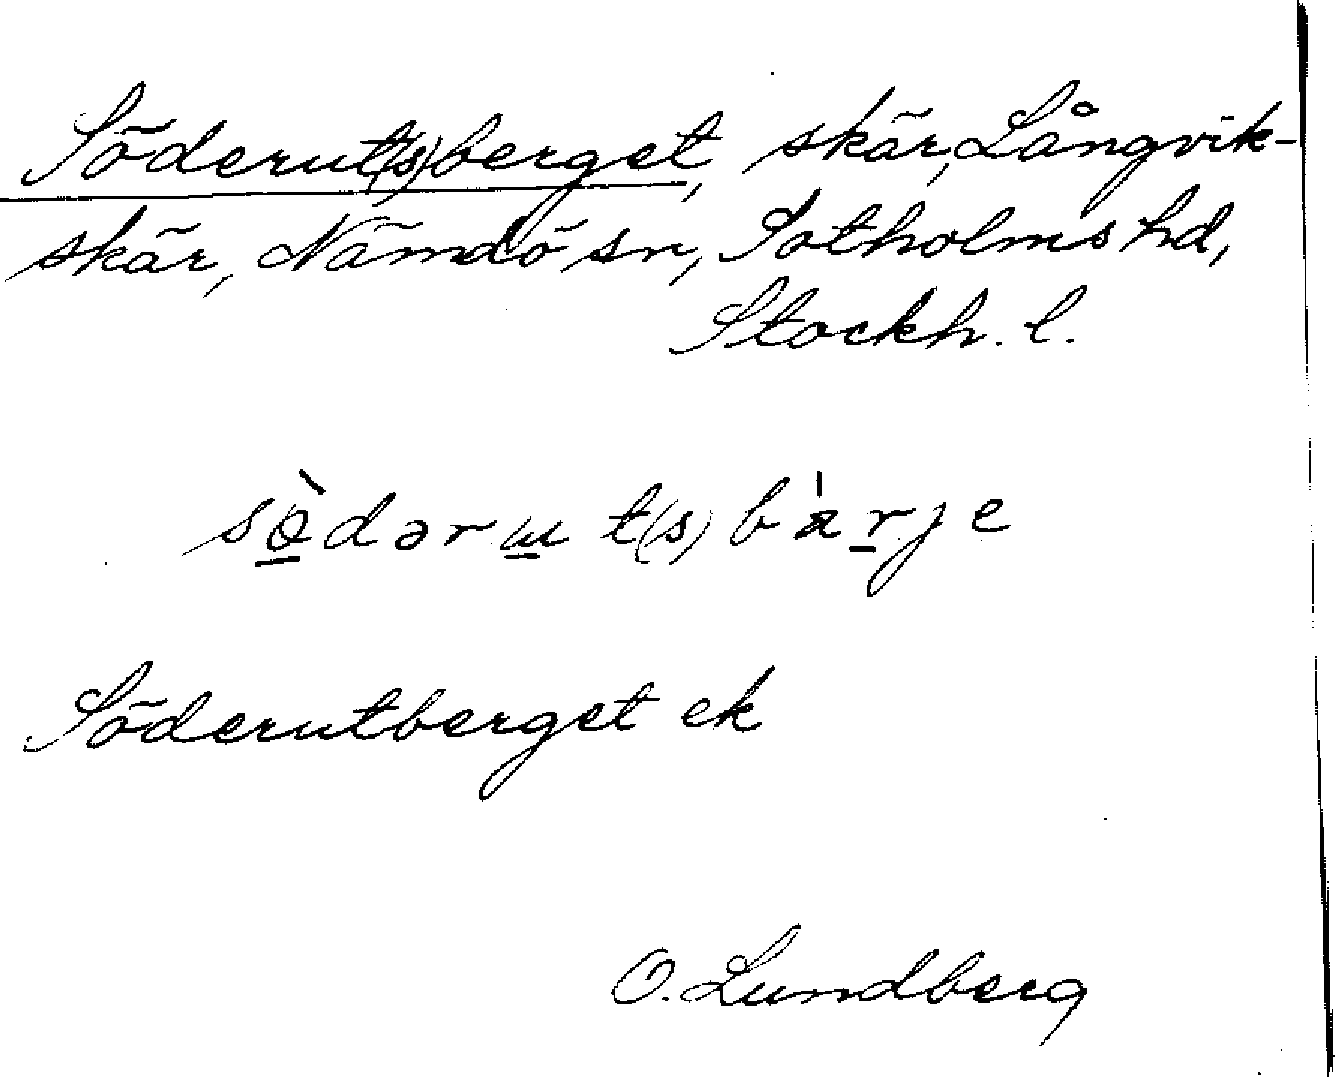 Söderut(s)berget, skär, Långvik-
skär, Nämdö sn, Sotholms hd,
Stockh. l.
sø̀dərɯt(s)bärje
Söderutberget ek
O. Lundberg